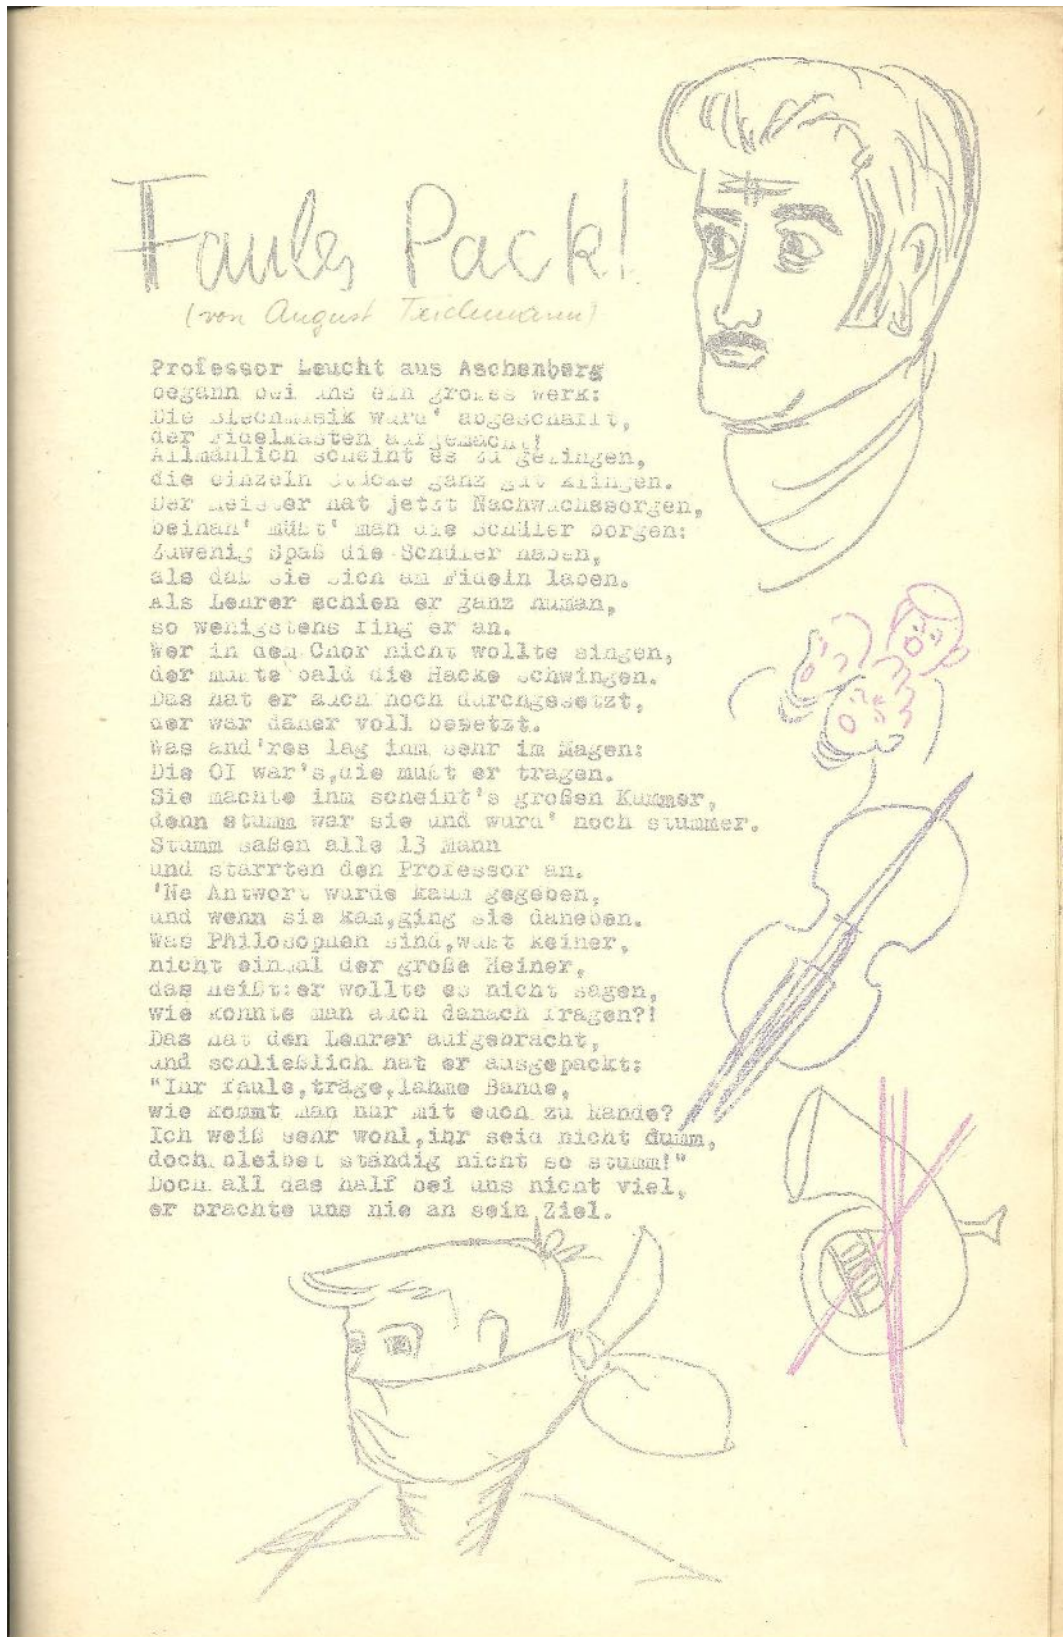 Faules Pack!
(von August Teichmann)
Professor Leucht aus Aschenberg
begann bei uns ein großes Werk:
Die Blechmusik wurd' abgeschafft,
der Fidelkasten aufgemacht!
Allmählich scheint es zu gelingen,
die einzeln Stücke ganz gut klingen.
Der Meister hat jetzt Nachwuchssorgen,
beinah' müßt' man die Schüler borgen:
Zuwenig Spaß die Schüler haben,
als daß sie sich am Fideln laben.
Als Lehrer schien er ganz human,
so wenigstens fing er an.
Wer in dem Chor nicht wollte singen,
der mußte bald die Hacke schwingen.
Das hat er auch noch durchgesetzt,
der war daher voll besetzt.
Was and'res lag ihm sehr im Magen:
Die OI war's,die mußt er tragen.
Sie machte ihm scheint's großen Kummer,
denn stumm war sie und wurd' noch stummer.
Stumm saßen alle 13 Mann
und starrten den Professor an.
'Ne Antwort wurde kaum gegeben,
und wenn sie kam,ging sie daneben.
Was Philosophen sind,wußt keiner,
nicht einmal der große Heiner,
das heißt:er wollte es nicht sagen,
wie konnte man auch danach fragen?!
Das hat den Lehrer aufgebracht,
und schließlich hat er ausgepackt:
"Ihr faule,träge,lahme Bande,
wie kommt man nur mit euch zu Rande?
Ich weiß sehr wohl,ihr seid nicht dumm,
doch bleibet ständig nicht so stumm!"
Doch all das half bei uns nicht viel,
er brachte uns nie an sein Ziel.